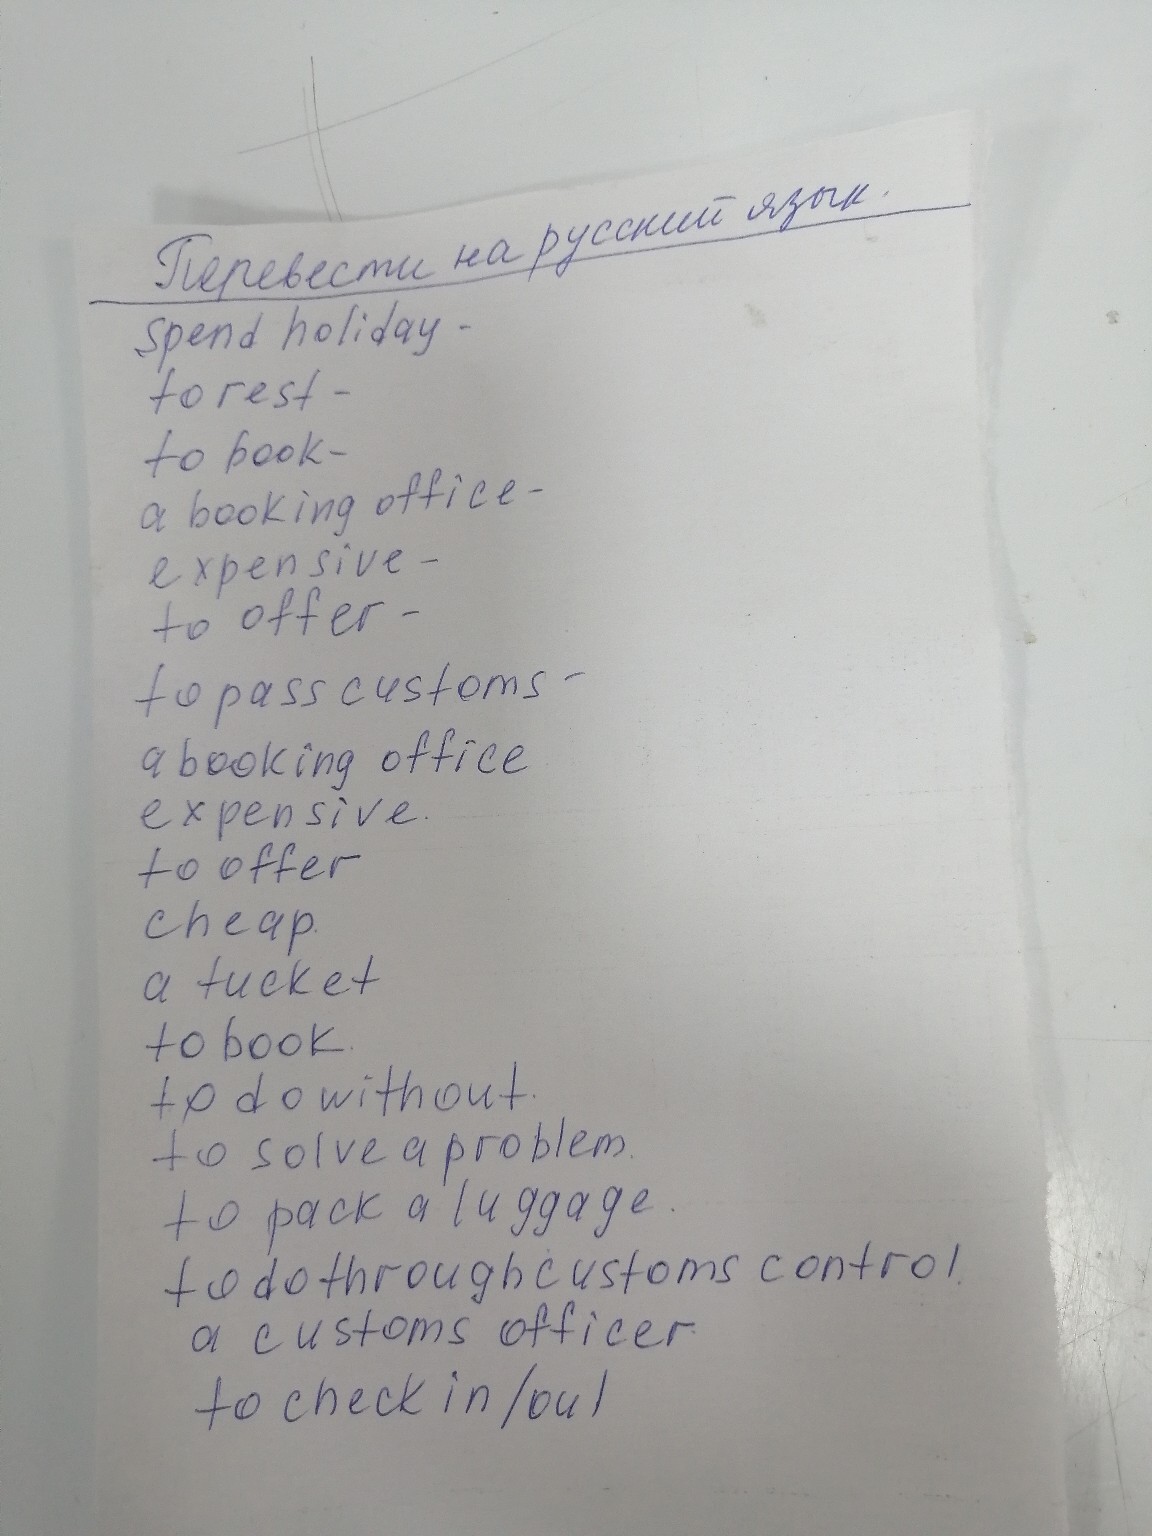 Перевести на русский язык.
spend holiday -
to rest -
to book -
a booking office -
expensive -
to offer -
to pass customs -
a booking office
expensive.
to offer
cheap.
a tucket
to book.
to do without.
to solve a problem.
to pack a luggage.
to do through customs control.
a customs officer.
to check in/out